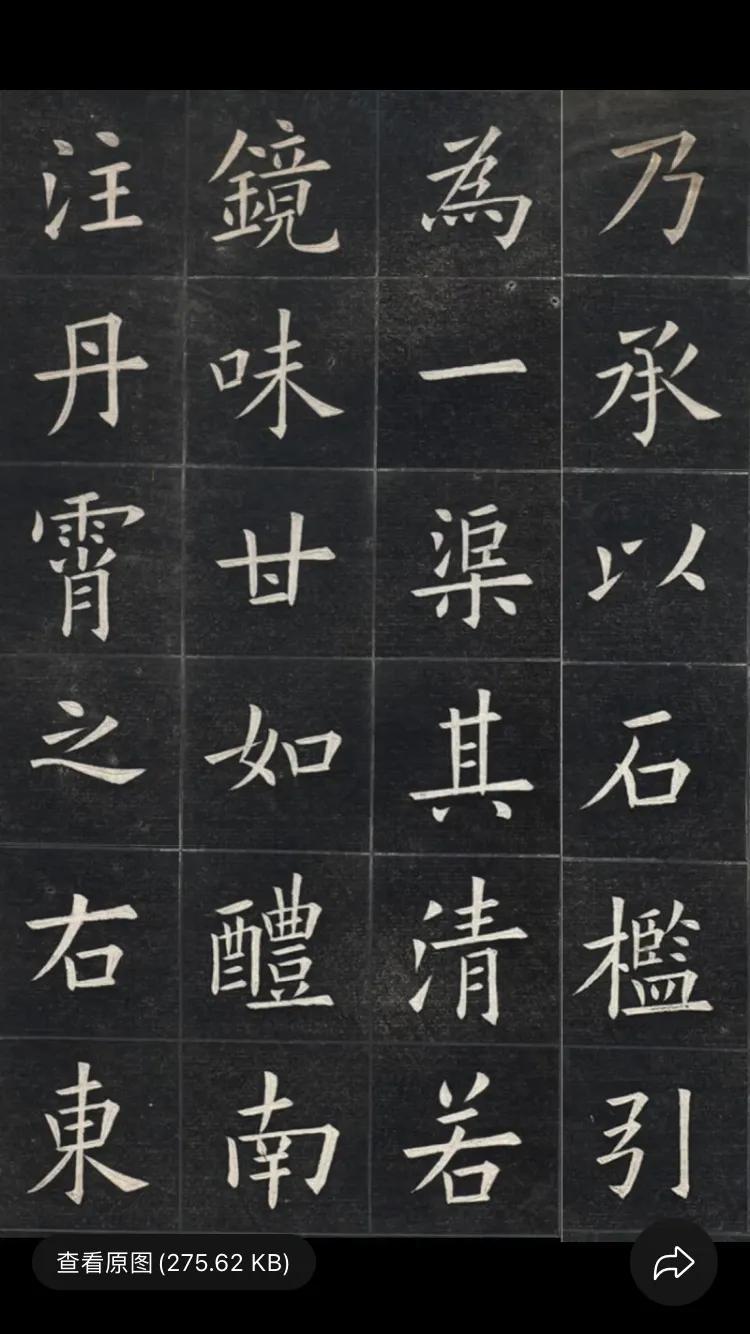 乃承以石檻引
為一渠其清若
鏡味甘如醴南
注丹霄之右東
查看原图(275.62 KB)